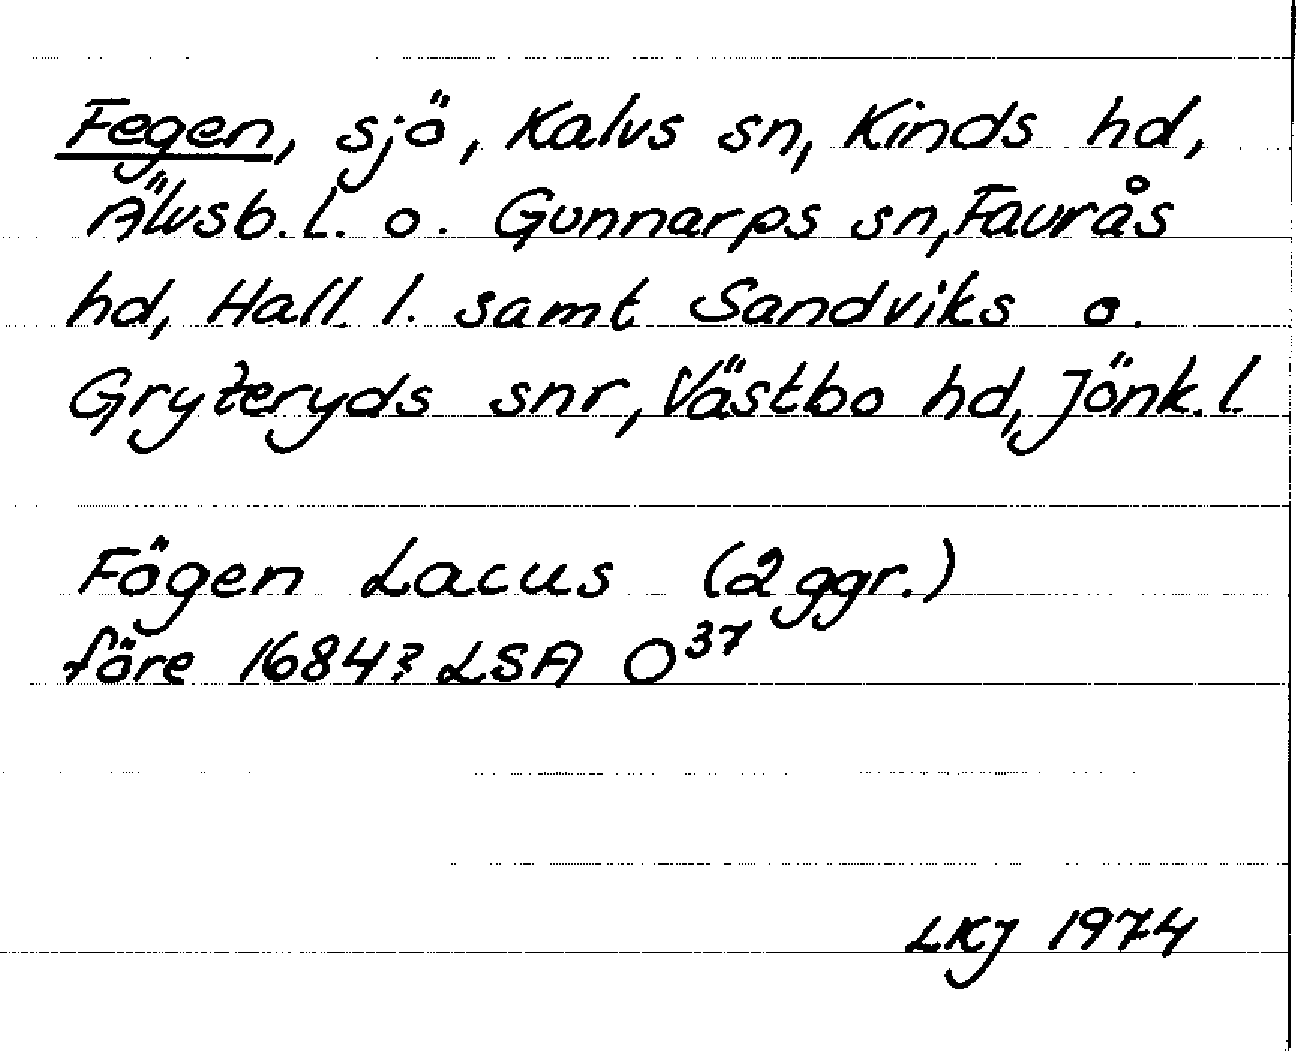 Fegen, sjö, Kalvs sn, Kinds hd,
Älvsb. l. o. Gunnarps sn, Faurås
hd, Hall. l. samt Sandviks o.
Gryteryds snr, Västbo hd, Jönk. l.
Fögen Lacus (2 ggr.)
före 1684? LSA O³⁷
LKJ 1974